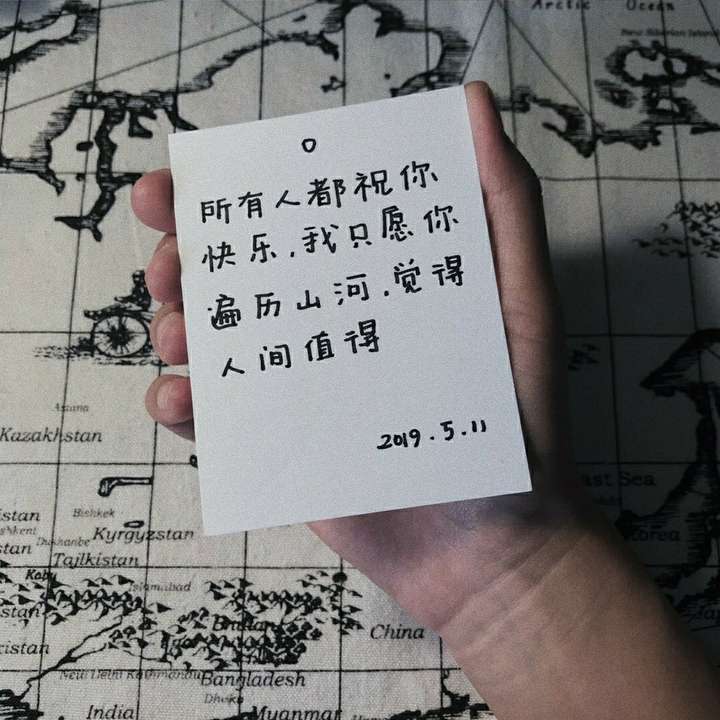 Arctic Ocean
New Siberian Islands
所有人都祝你
快乐.我只愿你
遍历山河.觉得
人间值得
2019.5.11
Astana
Kazakhstan
East Sea
Korea
Bishkek
Kyrgyzstan
Dushanbe
Tajlkistan
Islamabad
China
New Delhi Kathmandu
Bangladesh
Dhaka
India
Myanmar